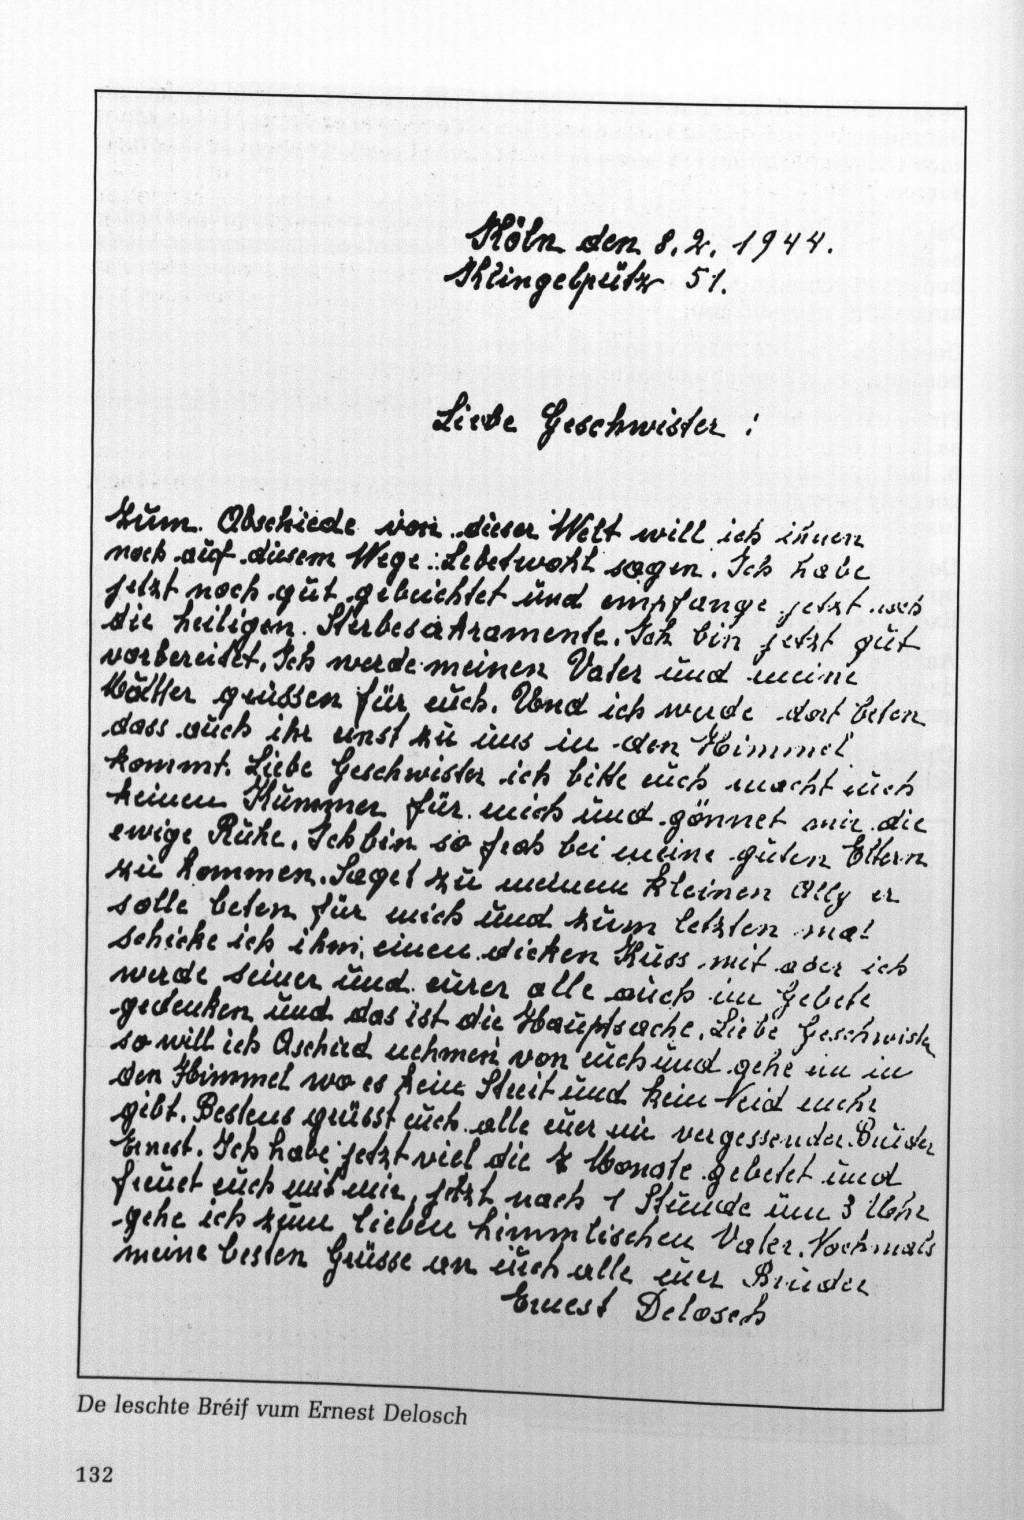 Köln den 8. 2. 1944.
Klingelpütz 51.
Liebe Geschwister :
Zum Abschiede von dieser Welt will ich ihnen
noch auf diesem Wege Lebetwohl sagen. Ich habe
jetzt noch gut gebeichtet und empfange jetzt noch
die heiligen Sterbesakramente. Ich bin jetzt gut
vorbereitet. Ich werde meinen Vater und meine
Mutter grüssen für euch. Und ich werde dort beten
dass auch ihr einst zu uns in den Himmel
kommt. Liebe Geschwister ich bitte euch macht euch
keinen Kummer für mich und gönnet mir die
ewige Ruhe. Ich bin so froh bei meine guten Eltern
zu kommen. Saget zu meinem kleinen Ally er
solle beten für mich und zum letzten mal
schicke ich ihm einen dicken Kuss mit aber ich
werde seiner und eurer alle auch im Gebete
gedenken und das ist die Hauptsache. Liebe Geschwister
so will ich Aschied nehmen von euch und gehe ein in
den Himmel wo es kein Streit und kein Neid mehr
gibt. Bestens grüsst euch alle euer nie vergessender Bruder
Ernest. Ich habe jetzt viel die 7 Monate gebetet und
freuet euch mit mir, jetzt nach 1 Stunde um 3 Uhr
gehe ich zum lieben himmlischen Vater. Nochmals
meine besten Grüsse an euch alle euer Bruder
Ernest Delosch
De leschte Bréif vum Ernest Delosch
132